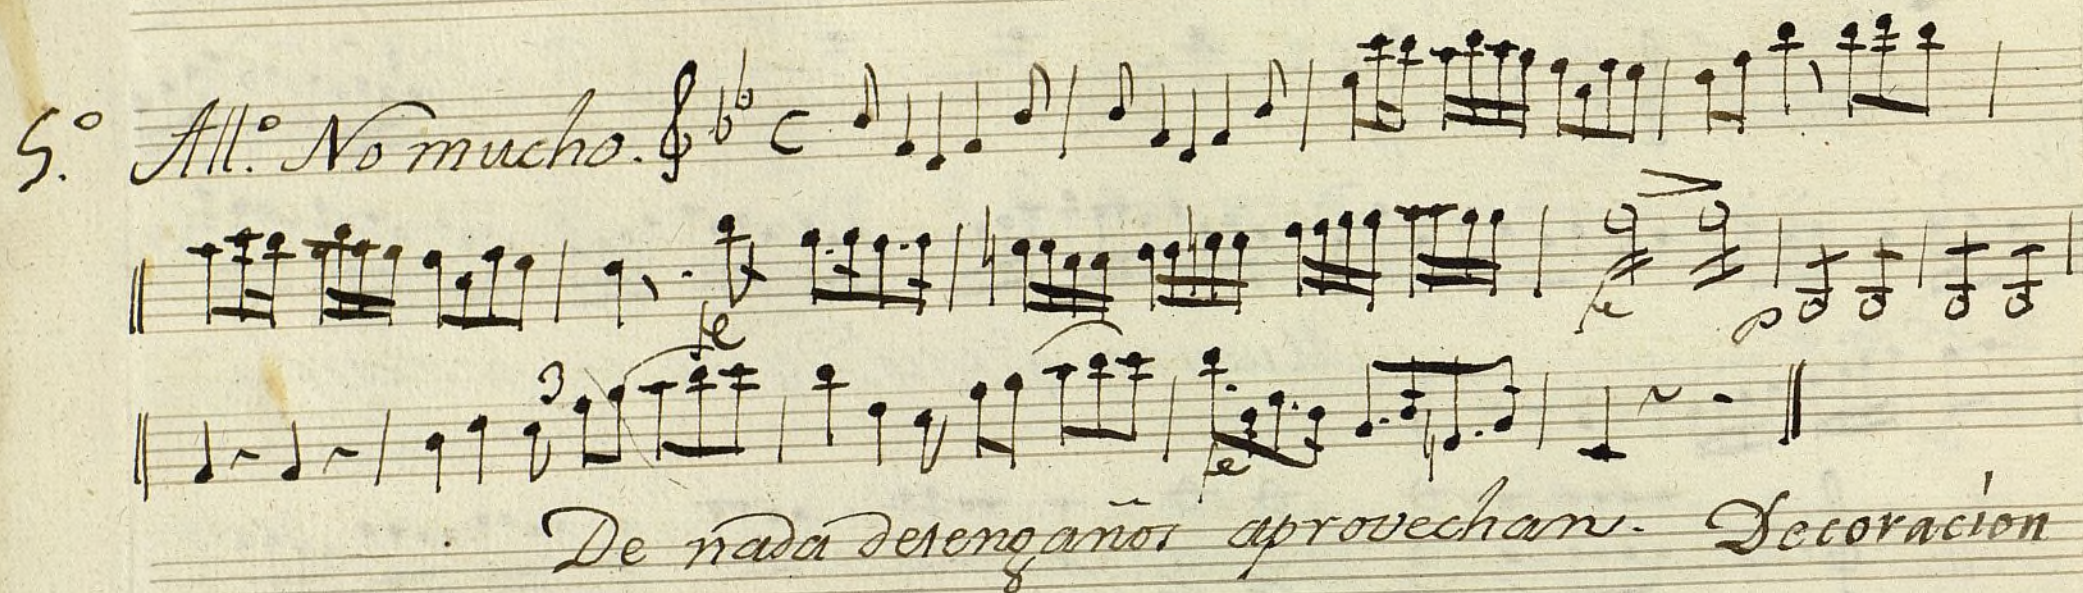 5.º All.º No mucho.
fe
fe
p
3
fe
De nada desengaños aprovechan. Decoración